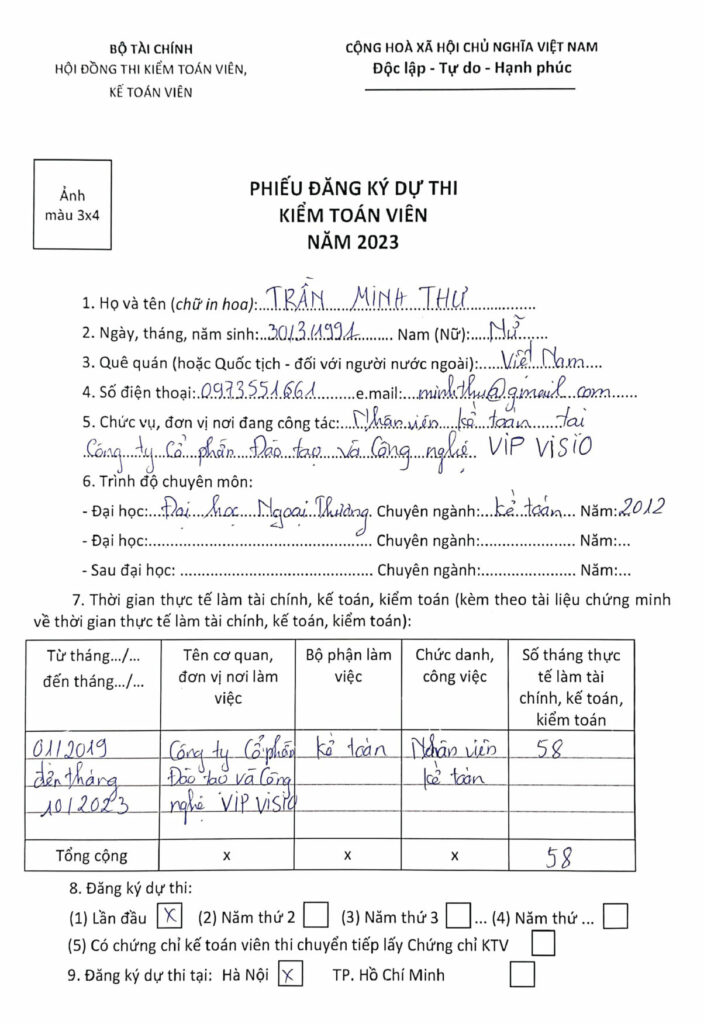 BỘ TÀI CHÍNH
HỘI ĐỒNG THI KIỂM TOÁN VIÊN,
KẾ TOÁN VIÊN
CỘNG HOÀ XÃ HỘI CHỦ NGHĨA VIỆT NAM
Độc lập - Tự do - Hạnh phúc
Ảnh
màu 3x4
PHIẾU ĐĂNG KÝ DỰ THI
KIỂM TOÁN VIÊN
NĂM 2023
1. Họ và tên (chữ in hoa): TRẦN MINH THƯ
2. Ngày, tháng, năm sinh: 30/3/1991 Nam (Nữ): Nữ
3. Quê quán (hoặc Quốc tịch - đối với người nước ngoài): Việt Nam
4. Số điện thoại: 0973551661 e.mail: minhthu@gmail.com
5. Chức vụ, đơn vị nơi đang công tác: Nhân viên kế toán tại
Công ty Cổ phần Đào tạo và Công nghệ VIP VISIO
6. Trình độ chuyên môn:
- Đại học: Đại học Ngoại Thương Chuyên ngành: kế toán Năm: 2012
- Đại học:........................ Chuyên ngành:.................... Năm:...
- Sau đại học: ........................ Chuyên ngành:.................... Năm:...
7. Thời gian thực tế làm tài chính, kế toán, kiểm toán (kèm theo tài liệu chứng minh
về thời gian thực tế làm tài chính, kế toán, kiểm toán):
Từ tháng.../... Tên cơ quan, Bộ phận làm Chức danh, Số tháng thực
đến tháng.../... đơn vị nơi làm việc công việc tế làm tài
việc chính, kế toán,
kiểm toán
01/2019 Công ty Cổ phần kế toán Nhân viên 58
đến tháng Đào tạo và Công kế toán
10/2023 nghệ VIP VISIO
Tổng cộng x x x 58
8. Đăng ký dự thi:
(1) Lần đầu X (2) Năm thứ 2 (3) Năm thứ 3 ... (4) Năm thứ ...
(5) Có chứng chỉ kế toán viên thi chuyển tiếp lấy Chứng chỉ KTV
9. Đăng ký dự thi tại: Hà Nội X TP. Hồ Chí Minh